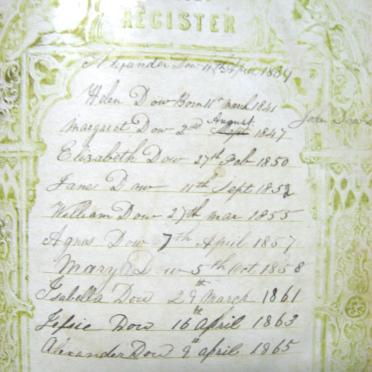 REGISTER
Alexander Dow 11th Apr 1839
Helen Dow Born 11th march 1841
John Dow
August
Margaret Dow 2nd Sept 1847
Elizabeth Dow 27th Feb 1850
James Dow 11th Sept 1852
William Dow 27th mar 1855
Agnes Dow 7th April 1857
Mary Dow 5th Oct 1858
Isabella Dow 29th March 1861
Jessie Dow 16th april 1863
Alexander Dow 9th april 1865